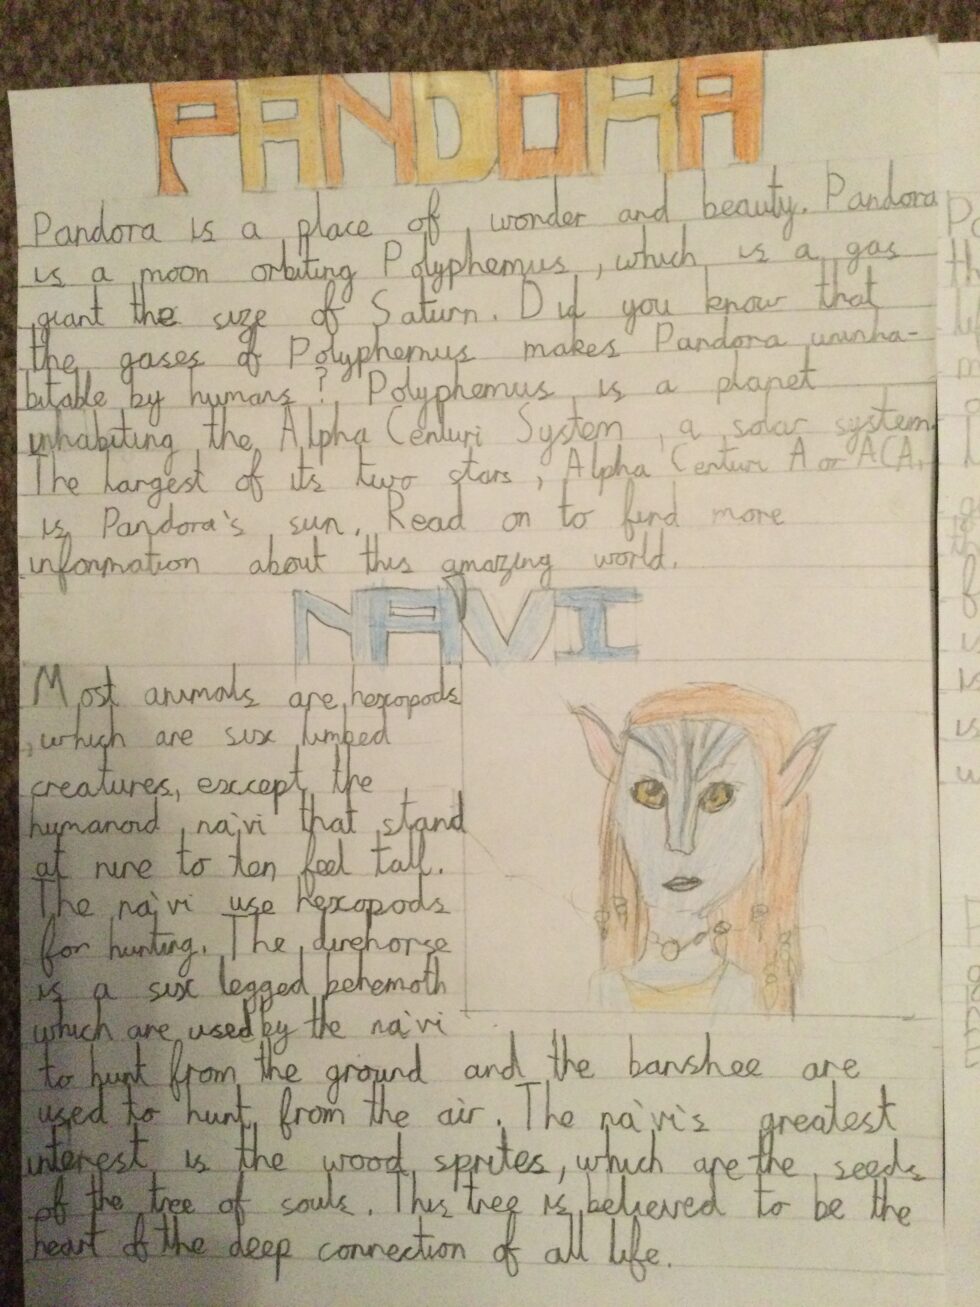 PANDORA
Pandora is a place of wonder and beauty. Pandora
is a moon orbiting Polyphemus, which is a gas
giant the size of Saturn. Did you know that
the gases of Polyphemus makes Pandora uninha-
bitable by humans? Polyphemus is a planet
inhabiting the Alpha Centuri System, a solar system.
The largest of its two stars, Alpha Centuri A or ACA,
is Pandora's sun. Read on to find more
information about this amazing world.
NA'VI
Most animals are hexopods
, which are six limbed
creatures, except the
humanoid na'vi that stand
at nine to ten feel tall.
The na'vi use hexopods
for hunting. The direhorse
is a six legged behemoth
which are used by the na'vi
to hunt from the ground and the banshee are
used to hunt from the air. The na'vi's greatest
interest is the wood sprites, which are the seeds
of the tree of souls. This tree is believed to be the
heart of the deep connection of all life.